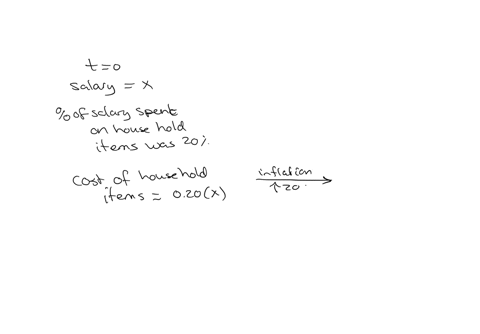 t=0
salary = x
% of salary spent
on house hold
items was 20%.
cost of household
items = 0.20(x)
inflation
↑20.